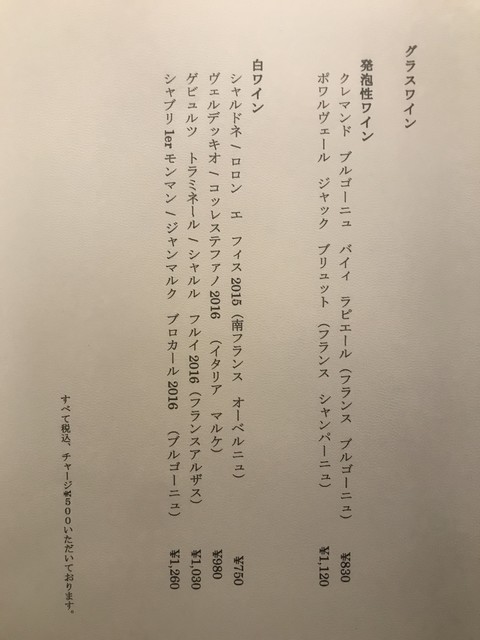 グラスワイン
発泡性ワイン
クレマンド ブルゴーニュ バイィ ラピエール (フランス ブルゴーニュ) ¥830
ポワルヴェール ジャック ブリュット (フランス シャンパーニュ) ¥1,120
白ワイン
シャルドネ / ロロン エ フィス 2015 (南フランス オーベルニュ) ¥750
ヴェルデッキオ / コッレステファノ 2016 (イタリア マルケ) ¥980
ゲビュルツ トラミネール / シャルル フルイ 2016 (フランスアルザス) ¥1,030
シャブリ 1er モンマン / ジャンマルク ブロカール 2016 (ブルゴーニュ) ¥1,260
すべて税込、チャージ¥500いただいております。